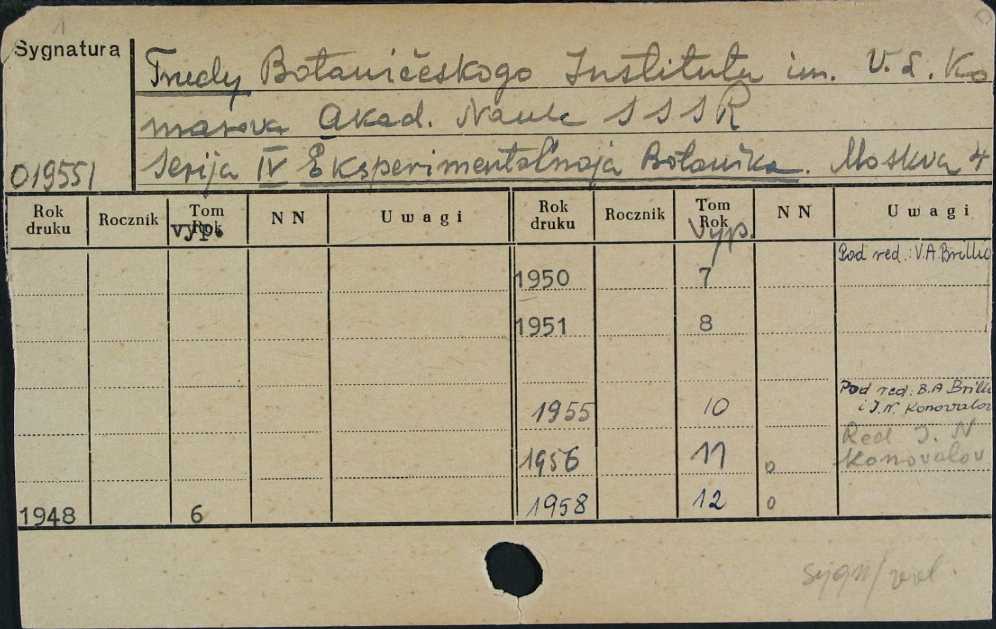 1
Sygnatura
Trudy Botaničeskogo Instituta im. V. L. Ko
marova Akad. Nauk SSSR
Serija IV Eksperimental'naja Botanika. Moskva 4
019551
Rok druku Rocznik Tom Rok NN Uwagi Rok druku Rocznik Tom Rok NN Uwagi
vyp. Vyp.
Pod red.: V.A. Brillia
1950 7
1951 8
Pod red. B.A Brilli
1955 10 i I.N. Konovalov
Red I. N
1956 11 o Konovalov
1948 6 1958 12 o
sygn/